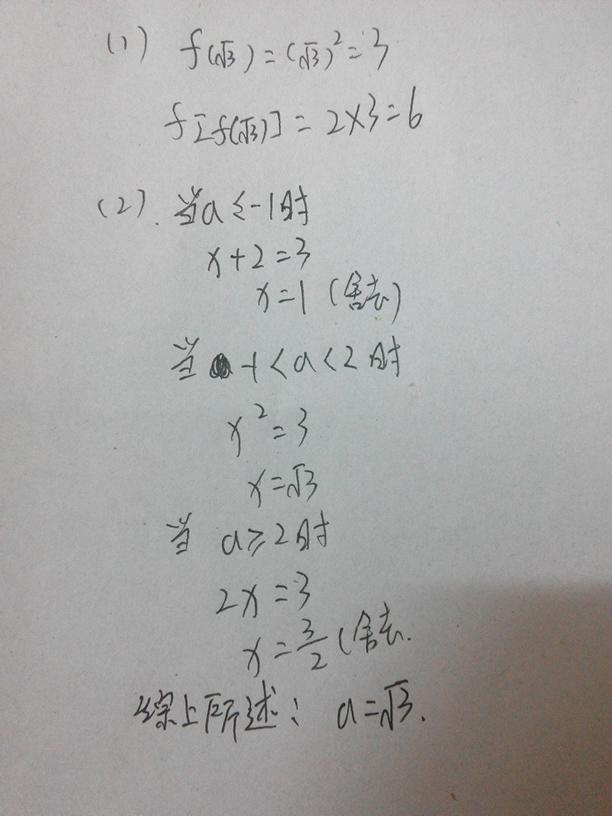 (1) f(√3)=(√3)²=3
f[f(√3)]=2×3=6
(2).当a≤-1时
x+2=3
x=1(舍去)
当 -1<a<2时
x²=3
x=√3
当 a≥2时
2x=3
x=3/2(舍去.
综上所述: a=√3.